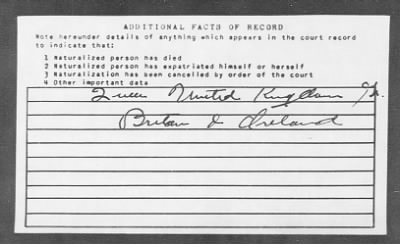 ADDITIONAL FACTS OF RECORD
Note hereunder details of anything which appears in the court record
to indicate that:
1 Naturalized person has died
2 Naturalized person has expatriated himself or herself
3 Naturalization has been cancelled by order of the court
4 Other important data
United Kingdom
Britain & Ireland